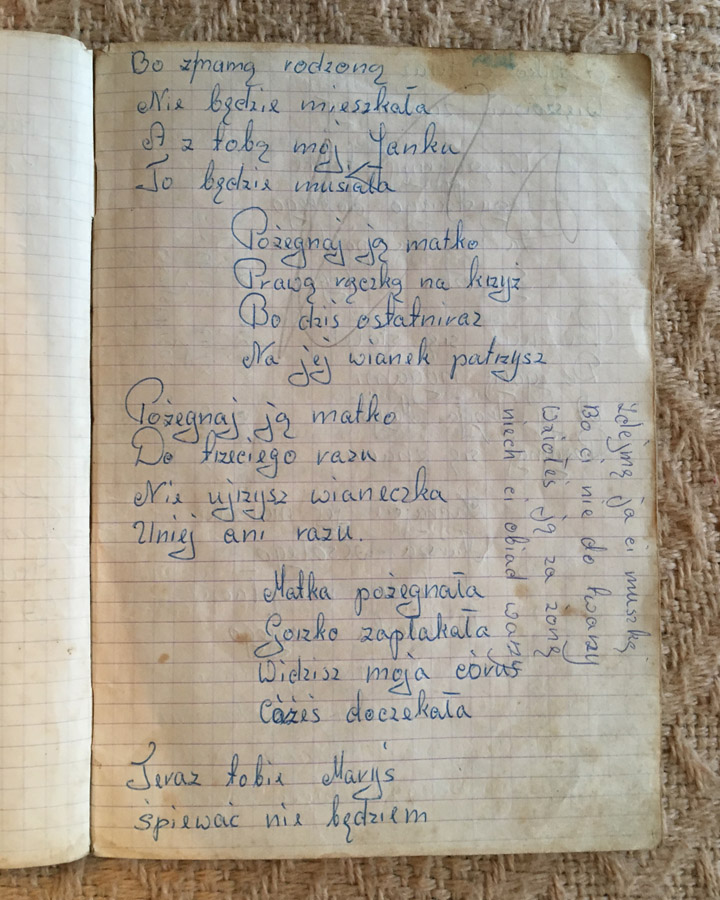 Bo zmamą rodzoną
Nie będzie mieszkała
A z tobą mój Janku
To będzie musiała
Pożegnaj ją matko
Prawą rączką na krzyż
Bo dziś ostatniraz
Na jej wianek patrzysz
Pożegnaj ją matko
Do trzeciego razu
Nie ujrzysz wianeczka
Uniej ani razu.
Matka pożegnała
Gorzko zapłakała
Widzisz moja córuś
Cóżeś doczekała
Teraz tobie Maryś
śpiewać nie będziem
Zdejmą ja ci muszką
Bo ci nie do twarzy
Wziołeś ją za żoną
niech ci obiad warzy